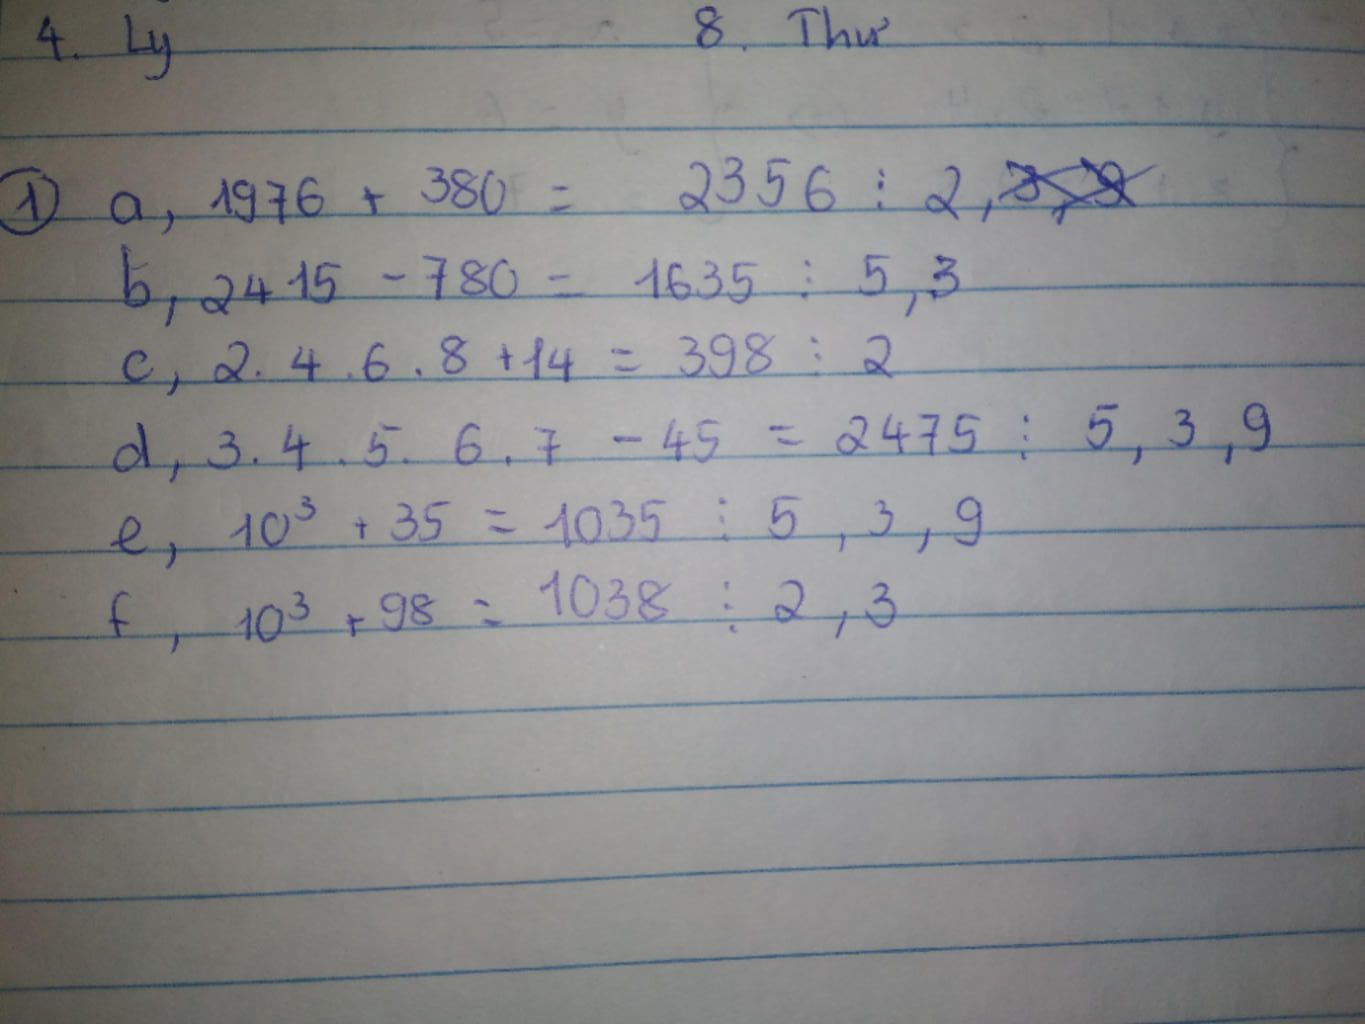 4. Ly 8. Thư
① a, 1976 + 380 = 2356 ⋮ 2, 3, 9
b, 2415 - 780 = 1635 ⋮ 5, 3
c, 2. 4 . 6 . 8 + 14 = 398 ⋮ 2
d, 3. 4 . 5. 6 . 7 - 45 = 2475 ⋮ 5, 3, 9
e, 10³ + 35 = 1035 ⋮ 5, 3, 9
f, 10³ + 98 = 1038 ⋮ 2, 3